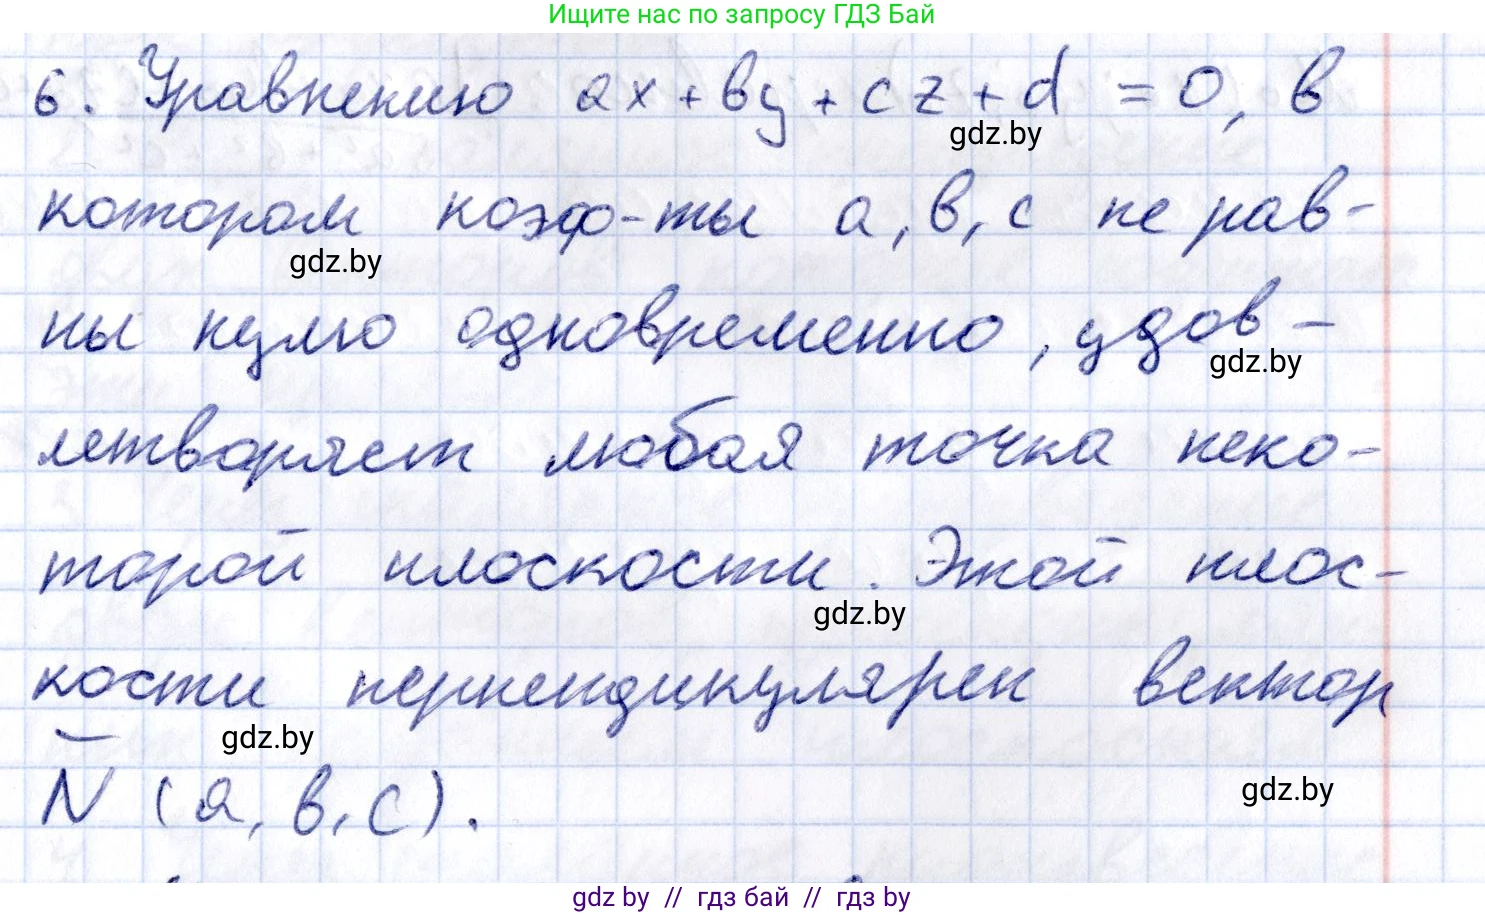 Ищите нас по запросу ГДЗ Бай
6. Уравнению ax + by + cz + d = 0, в
gdz.by
котором коэф-ты a, b, c не рав-
gdz.by
ны нулю одновременно, удов-
gdz.by
летворяет любая точка неко-
торой плоскости. Этой плос-
gdz.by
кости перпендикулярен вектор
gdz.by
N̅ (a, b, c).
gdz.by
gdz.by // гдз бай // гдз by